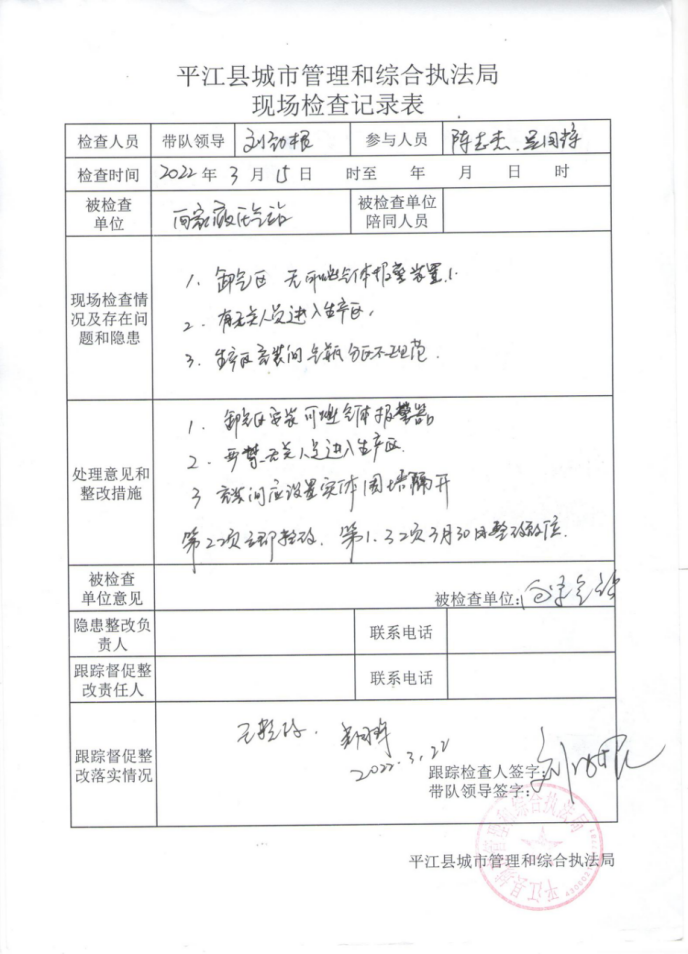 平江县城市管理和综合执法局
现场检查记录表
检查人员 带队领导 参与人员 陈志杰、
检查时间 2022年 3月 15日 时至 年 月 日 时
被检查
单位
被检查单位
陪同人员
现场检查情
况及存在问
题和隐患
1. 卸气区 无可燃气体报警装置.
2. 有无关人员进入生产区,
3. 生产区充装间气瓶分区不规范.
处理意见和
整改措施
1. 卸气区安装可燃气体报警器。
2. 严禁无关人员进入生产区.
3 充装间应设置实体围墙隔开
第2项立即整改. 第1.3项3月30日整改到位.
被检查
单位意见
被检查单位:
隐患整改负
责人
联系电话
跟踪督促整
改责任人
联系电话
跟踪督促整
改落实情况
已整改.
2022.3.22
跟踪检查人签字:
带队领导签字:
平江县城市管理和综合执法局
平江县城市管理和综合执法局